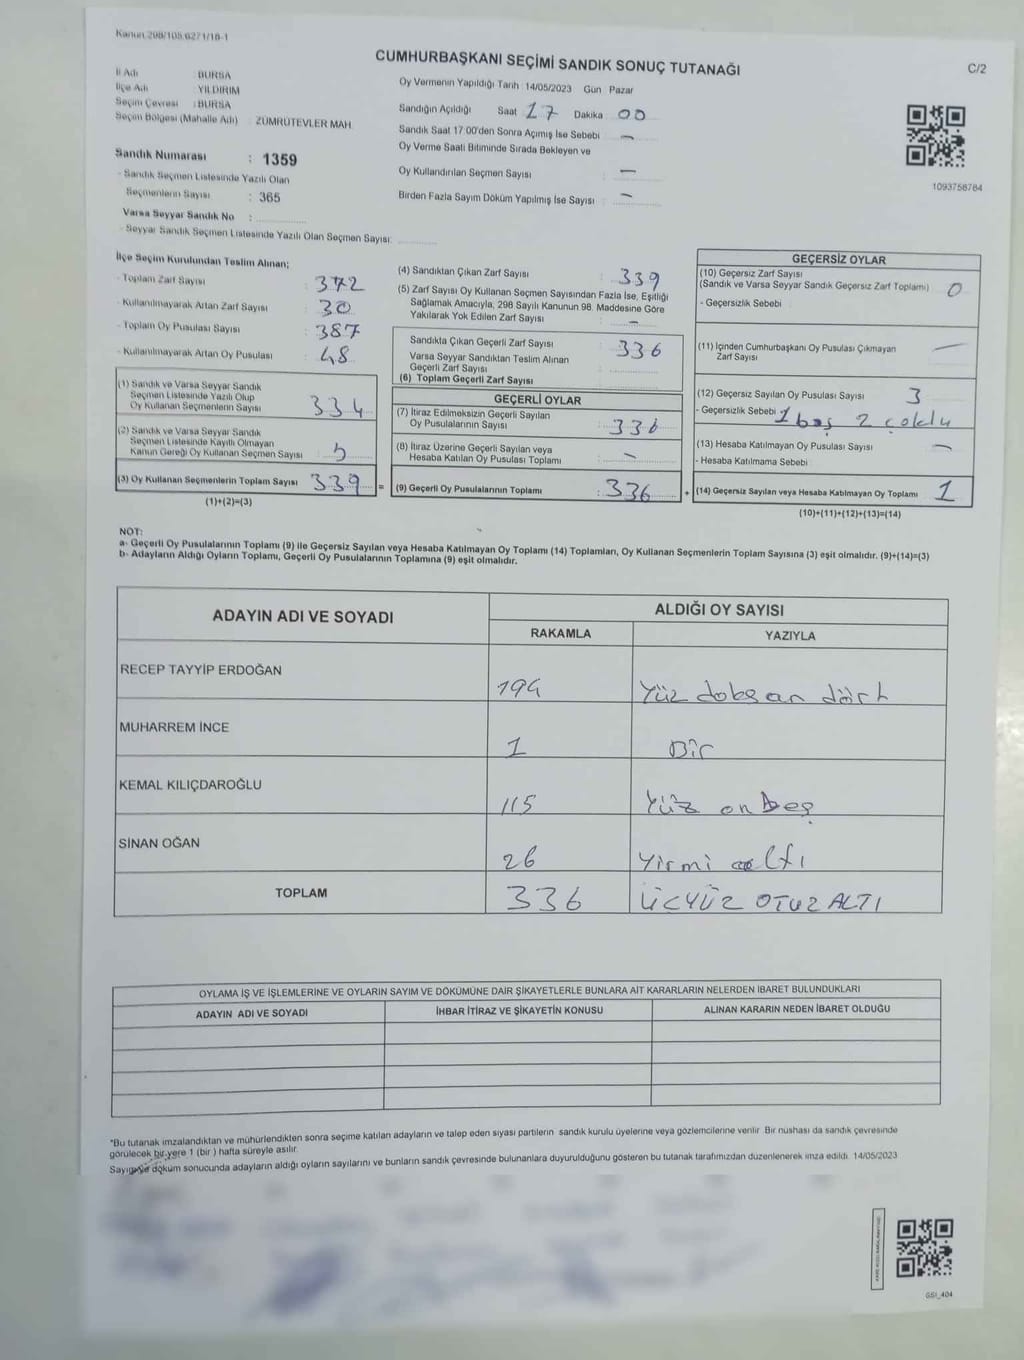 Kanun 298/105,6271/18-1
CUMHURBAŞKANI SEÇİMİ SANDIK SONUÇ TUTANAĞI
C/2
İl Adı : BURSA
İlçe Adı : YILDIRIM
Seçim Çevresi : BURSA
Seçim Bölgesi (Mahalle Adı) : ZÜMRÜTEVLER MAH.
Sandık Numarası : 1359
- Sandık Seçmen Listesinde Yazılı Olan
Seçmenlerin Sayısı : 365
Varsa Seyyar Sandık No :
- Seyyar Sandık Seçmen Listesinde Yazılı Olan Seçmen Sayısı:
Oy Vermenin Yapıldığı Tarih : 14/05/2023 Gün : Pazar
Sandığın Açıldığı Saat 17 Dakika 00
Sandık Saat 17:00'den Sonra Açımış İse Sebebi : —
Oy Verme Saati Bitiminde Sırada Bekleyen ve
Oy Kullandırılan Seçmen Sayısı : —
Birden Fazla Sayım Döküm Yapılmış İse Sayısı : —
1093756784
İlçe Seçim Kurulundan Teslim Alınan;
- Toplam Zarf Sayısı : 372
- Kullanılmayarak Artan Zarf Sayısı : 30
- Toplam Oy Pusulası Sayısı : 387
- Kullanılmayarak Artan Oy Pusulası : 48
(1) Sandık ve Varsa Seyyar Sandık
Seçmen Listesinde Yazılı Olup
Oy Kullanan Seçmenlerin Sayısı : 334
(2) Sandık ve Varsa Seyyar Sandık
Seçmen Listesinde Kayıtlı Olmayan
Kanun Gereği Oy Kullanan Seçmen Sayısı : 5
(3) Oy Kullanan Seçmenlerin Toplam Sayısı : 339 =
(1)+(2)=(3)
(4) Sandıktan Çıkan Zarf Sayısı : 339
(5) Zarf Sayısı Oy Kullanan Seçmen Sayısından Fazla İse, Eşitliği
Sağlamak Amacıyla, 298 Sayılı Kanunun 98. Maddesine Göre
Yakılarak Yok Edilen Zarf Sayısı : —
Sandıkta Çıkan Geçerli Zarf Sayısı : 336
Varsa Seyyar Sandıktan Teslim Alınan
Geçerli Zarf Sayısı :
(6) Toplam Geçerli Zarf Sayısı :
GEÇERLİ OYLAR
(7) İtiraz Edilmeksizin Geçerli Sayılan
Oy Pusulalarının Sayısı : 336
(8) İtiraz Üzerine Geçerli Sayılan veya
Hesaba Katılan Oy Pusulası Toplamı : —
(9) Geçerli Oy Pusulalarının Toplamı : 336 +
GEÇERSİZ OYLAR
(10) Geçersiz Zarf Sayısı
(Sandık ve Varsa Seyyar Sandık Geçersiz Zarf Toplamı) : 0
- Geçersizlik Sebebi :
(11) İçinden Cumhurbaşkanı Oy Pusulası Çıkmayan
Zarf Sayısı : —
(12) Geçersiz Sayılan Oy Pusulası Sayısı : 3
- Geçersizlik Sebebi : 1 boş 2 çoklu
(13) Hesaba Katılmayan Oy Pusulası Sayısı : —
- Hesaba Katılmama Sebebi :
(14) Geçersiz Sayılan veya Hesaba Katılmayan Oy Toplamı : 1
(10)+(11)+(12)+(13)=(14)
NOT:
a- Geçerli Oy Pusulalarının Toplamı (9) ile Geçersiz Sayılan veya Hesaba Katılmayan Oy Toplamı (14) Toplamları, Oy Kullanan Seçmenlerin Toplam Sayısına (3) eşit olmalıdır. (9)+(14)=(3)
b- Adayların Aldığı Oyların Toplamı, Geçerli Oy Pusulalarının Toplamına (9) eşit olmalıdır.
ADAYIN ADI VE SOYADI ALDIĞI OY SAYISI
RAKAMLA YAZIYLA
RECEP TAYYİP ERDOĞAN 194 Yüz doksan dört
MUHARREM İNCE 1 Bir
KEMAL KILIÇDAROĞLU 115 Yüz on beş
SİNAN OĞAN 26 Yirmi altı
TOPLAM 336 ÜÇYÜZ OTUZ ALTI
OYLAMA İŞ VE İŞLEMLERİNE VE OYLARIN SAYIM VE DÖKÜMÜNE DAİR ŞİKAYETLERLE BUNLARA AİT KARARLARIN NELERDEN İBARET BULUNDUKLARI
ADAYIN ADI VE SOYADI İHBAR İTİRAZ VE ŞİKAYETİN KONUSU ALINAN KARARIN NEDEN İBARET OLDUĞU
*Bu tutanak imzalandıktan ve mühürlendikten sonra seçime katılan adayların ve talep eden siyasi partilerin sandık kurulu üyelerine veya gözlemcilerine verilir. Bir nüshası da sandık çevresinde
görülecek bir yere 1 (bir ) hafta süreyle asılır.
Sayım ve döküm sonucunda adayların aldığı oyların sayılarını ve bunların sandık çevresinde bulunanlara duyurulduğunu gösteren bu tutanak tarafımızdan düzenlenerek imza edildi. 14/05/2023
GSI_404